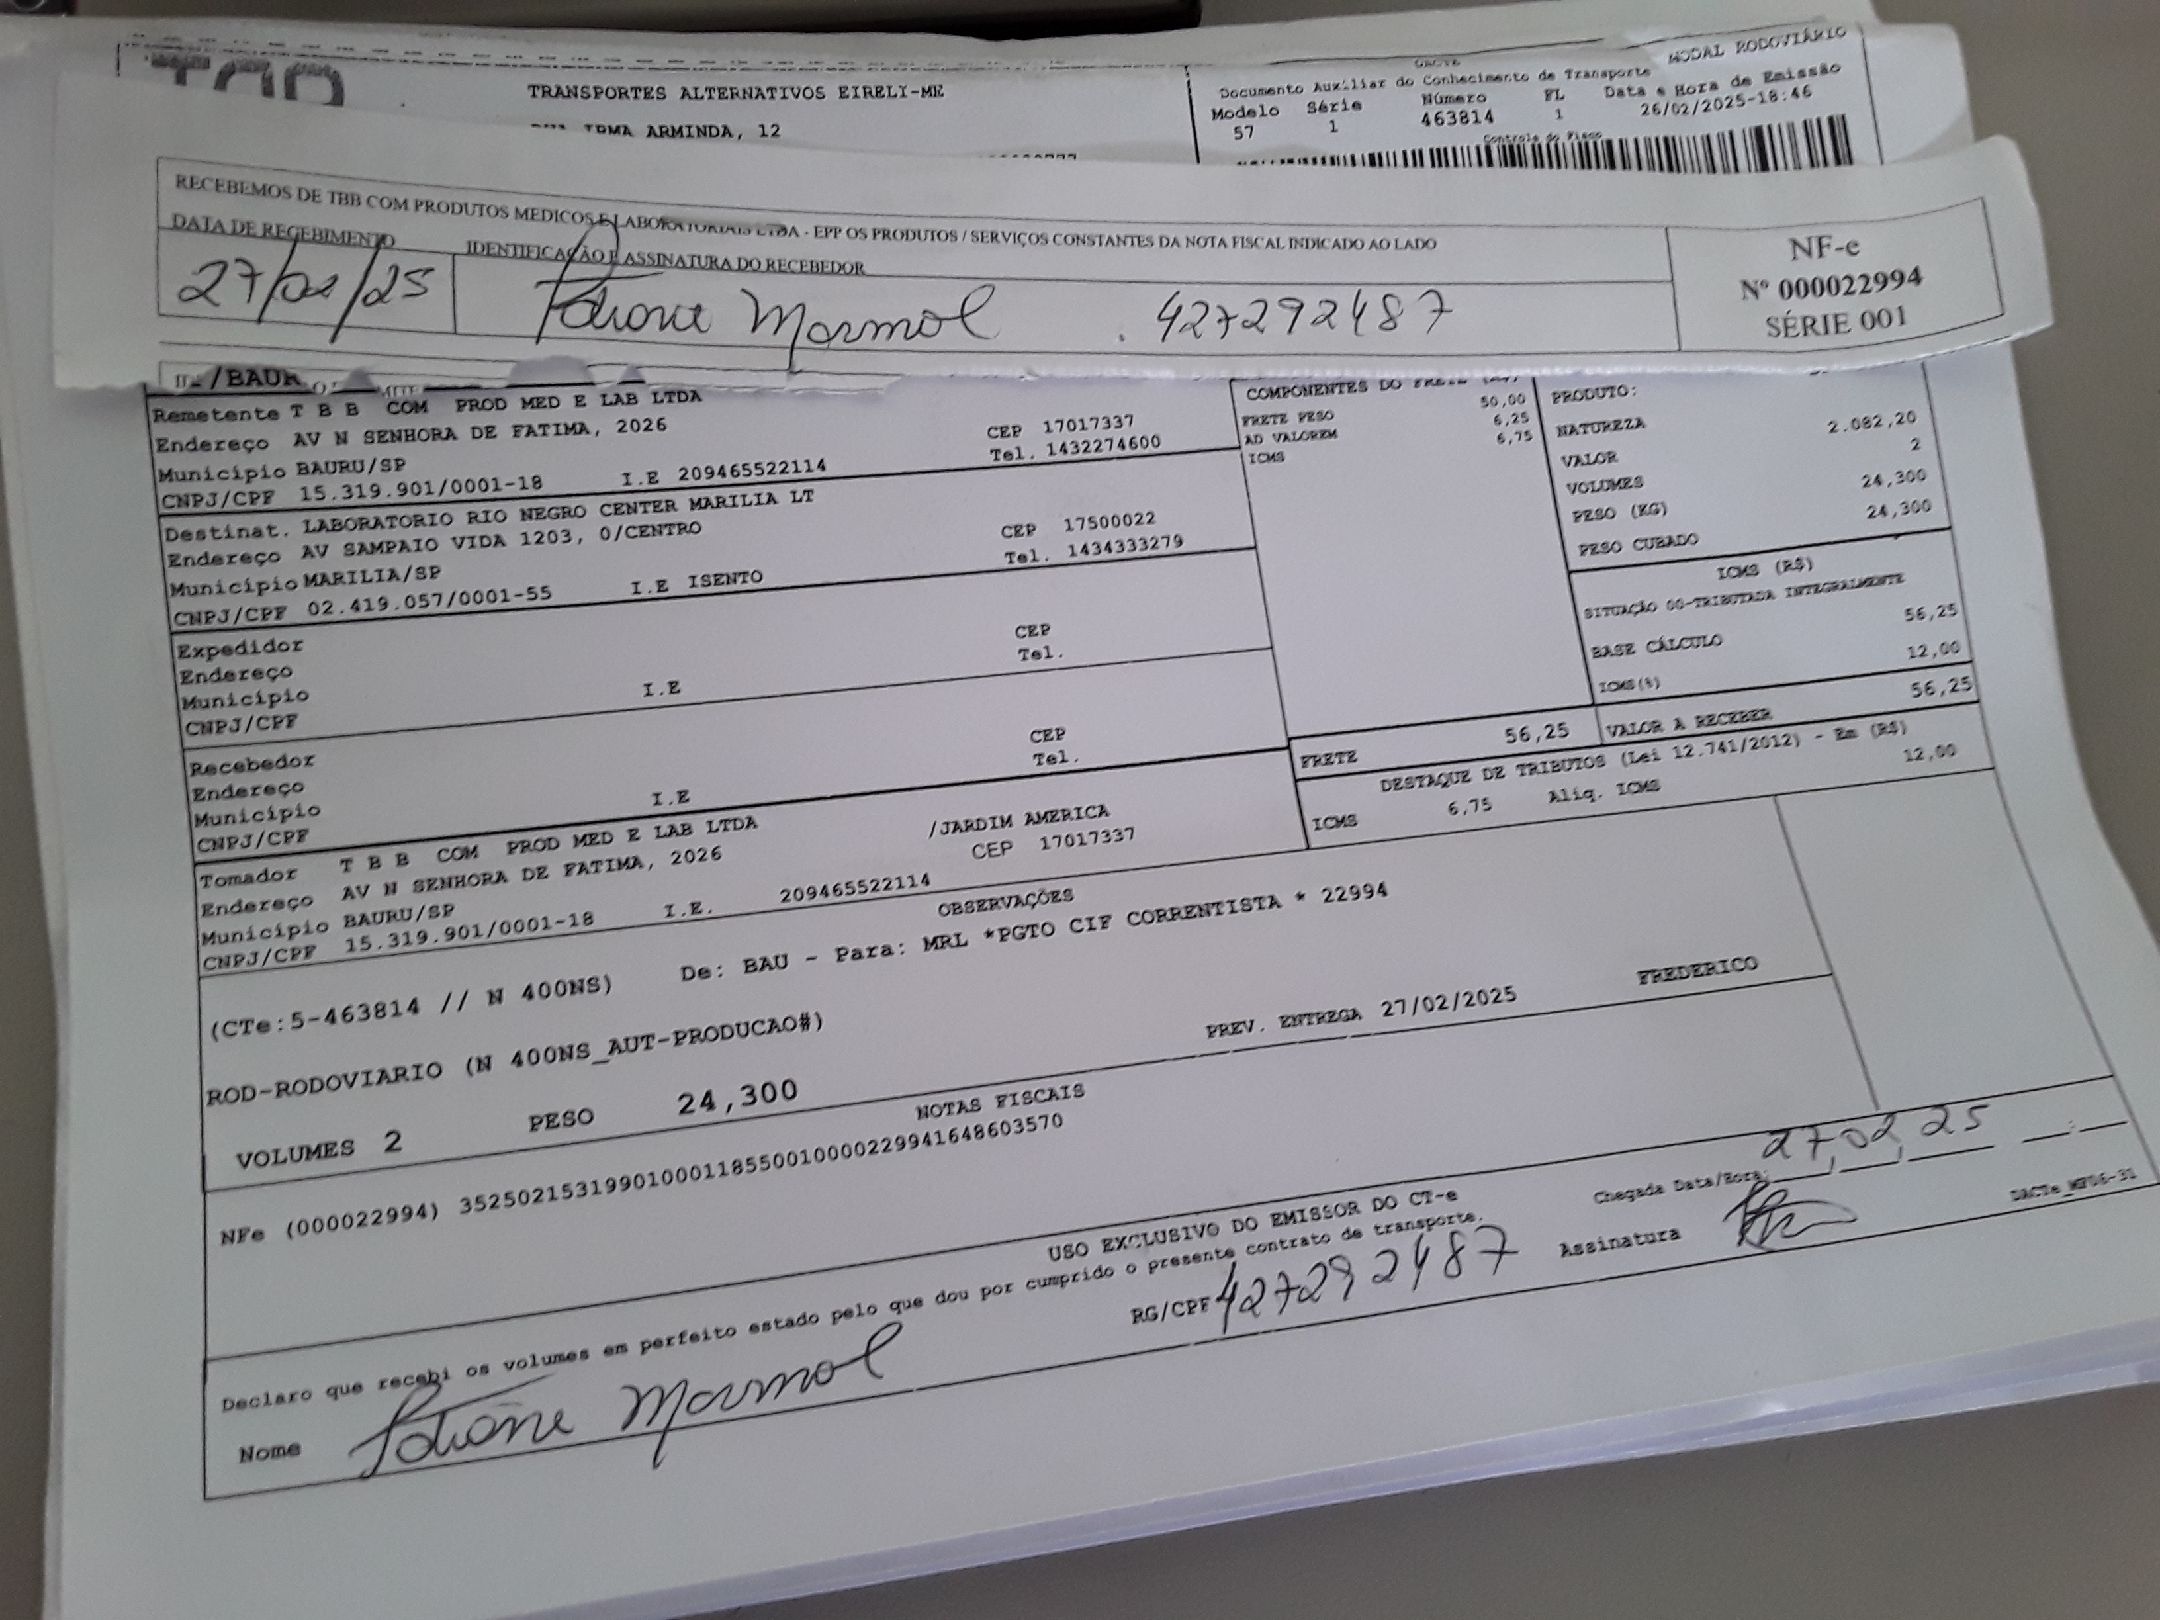 TRANSPORTES ALTERNATIVOS EIRELI-ME
IRMA ARMINDA, 12
DACTE
MODAL RODOVIÁRIO
Documento Auxiliar do Conhecimento de Transporte
Modelo Série Número FL Data e Hora de Emissão
57 1 463814 1 26/02/2025-18:46
Controle do Fisco
RECEBEMOS DE TBB COM PRODUTOS MEDICOS E LABORATORIAIS LTDA - EPP OS PRODUTOS / SERVIÇOS CONSTANTES DA NOTA FISCAL INDICADO AO LADO
DATA DE RECEBIMENTO IDENTIFICAÇÃO E ASSINATURA DO RECEBEDOR
27/02/25 Marmol 427292487
NF-e
Nº 000022994
SÉRIE 001
/BAUR
Remetente T B B COM PROD MED E LAB LTDA
Endereço AV N SENHORA DE FATIMA, 2026 CEP 17017337
Município BAURU/SP Tel. 1432274600
CNPJ/CPF 15.319.901/0001-18 I.E 209465522114
Destinat. LABORATORIO RIO NEGRO CENTER MARILIA LT
Endereço AV SAMPAIO VIDA 1203, 0/CENTRO CEP 17500022
Município MARILIA/SP Tel. 1434333279
CNPJ/CPF 02.419.057/0001-55 I.E ISENTO
Expedidor
Endereço CEP
Município Tel.
CNPJ/CPF I.E
Recebedor
Endereço CEP
Município Tel.
CNPJ/CPF I.E
Tomador T B B COM PROD MED E LAB LTDA
Endereço AV N SENHORA DE FATIMA, 2026 /JARDIM AMERICA
Município BAURU/SP CEP 17017337
CNPJ/CPF 15.319.901/0001-18 I.E. 209465522114
COMPONENTES DO FRETE
FRETE PESO 50,00
AD VALOREM 6,25
ICMS 6,75
PRODUTO:
NATUREZA
VALOR 2.082,20
VOLUMES 2
PESO (KG) 24,300
PESO CUBADO 24,300
ICMS (R$)
SITUAÇÃO 00-TRIBUTADA INTEGRALMENTE
BASE CÁLCULO 56,25
ICMS(%) 12,00
FRETE 56,25 VALOR A RECEBER 56,25
DESTAQUE DE TRIBUTOS (Lei 12.741/2012) - Em (R$)
ICMS 6,75 Aliq. ICMS 12,00
OBSERVAÇÕES
(CTe:5-463814 // N 400NS) De: BAU - Para: MRL *PGTO CIF CORRENTISTA * 22994
ROD-RODOVIARIO (N 400NS_AUT-PRODUCAO#) PREV. ENTREGA 27/02/2025 FREDERICO
VOLUMES 2 PESO 24,300
NOTAS FISCAIS
NFe (000022994) 35250215319901000118550010000229941648603570
USO EXCLUSIVO DO EMISSOR DO CT-e
Declaro que recebi os volumes em perfeito estado pelo que dou por cumprido o presente contrato de transporte.
Chegada Data/Hora: 27,02,25
Nome Marmol RG/CPF 427292487 Assinatura